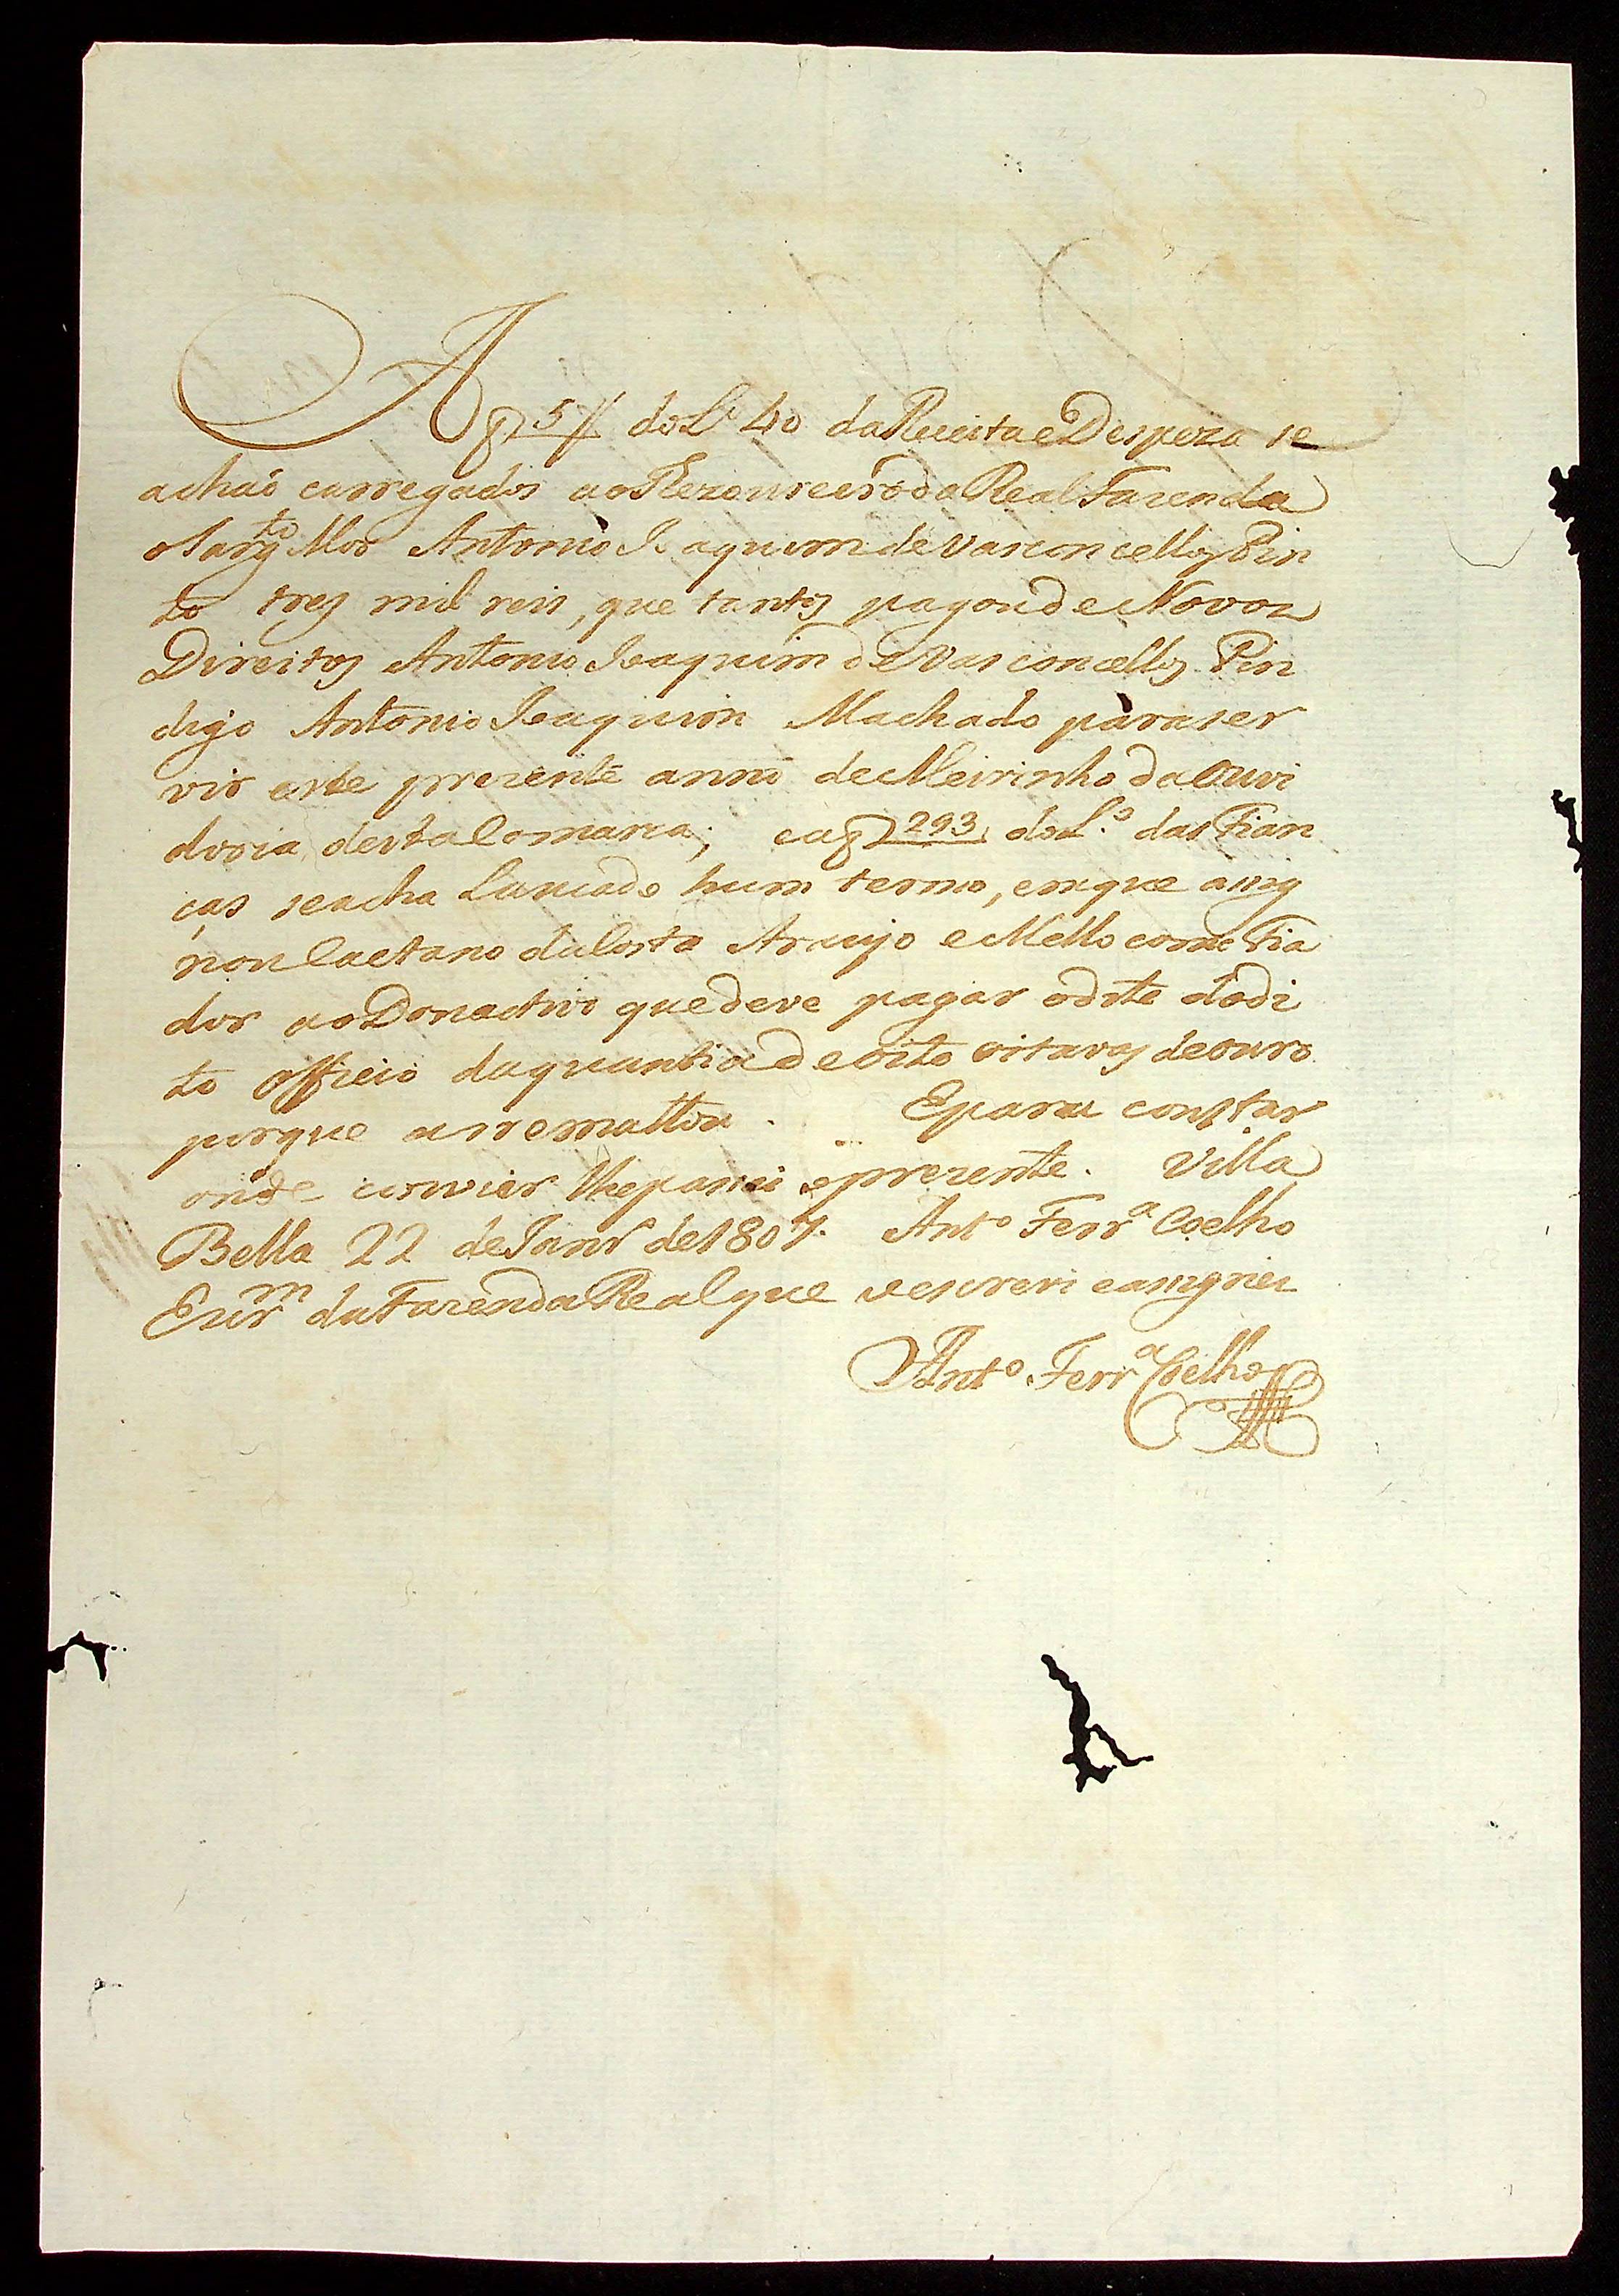 A f 5 do L.º 40 da Receita e Despeza se
achaõ carregados ao Thezoureiro da Real Fazenda
o Sarg.to Mor Antonio Joaquim de Vasconcellos Pin
to tres mil reis, que tantos pagou de Novos
Direitos Antonio Joaquim de Vasconcellos Pin
digo Antonio Joaquim Machado para ser
vir este prezente anno de Meirinho da Ouvi
doria desta Comarca; e a f 293 do L.º das Fian
ças se acha lancado hum termo, em que assig
nou Caetano da Costa Araujo e Mello como Fia
dor ao Donactivo que deve pagar o dite do di
to Officio da quantia de oito oitavas de ouro
porque arrematou. E para constar
onde convier lhe passei o prezente. Villa
Bella 22 de Janr.º de 1807. Ant.º Ferr.ª Coelho
Escr.m da Fazenda Real que o escrevi e assignei
Ant.º Ferr.ª Coelho